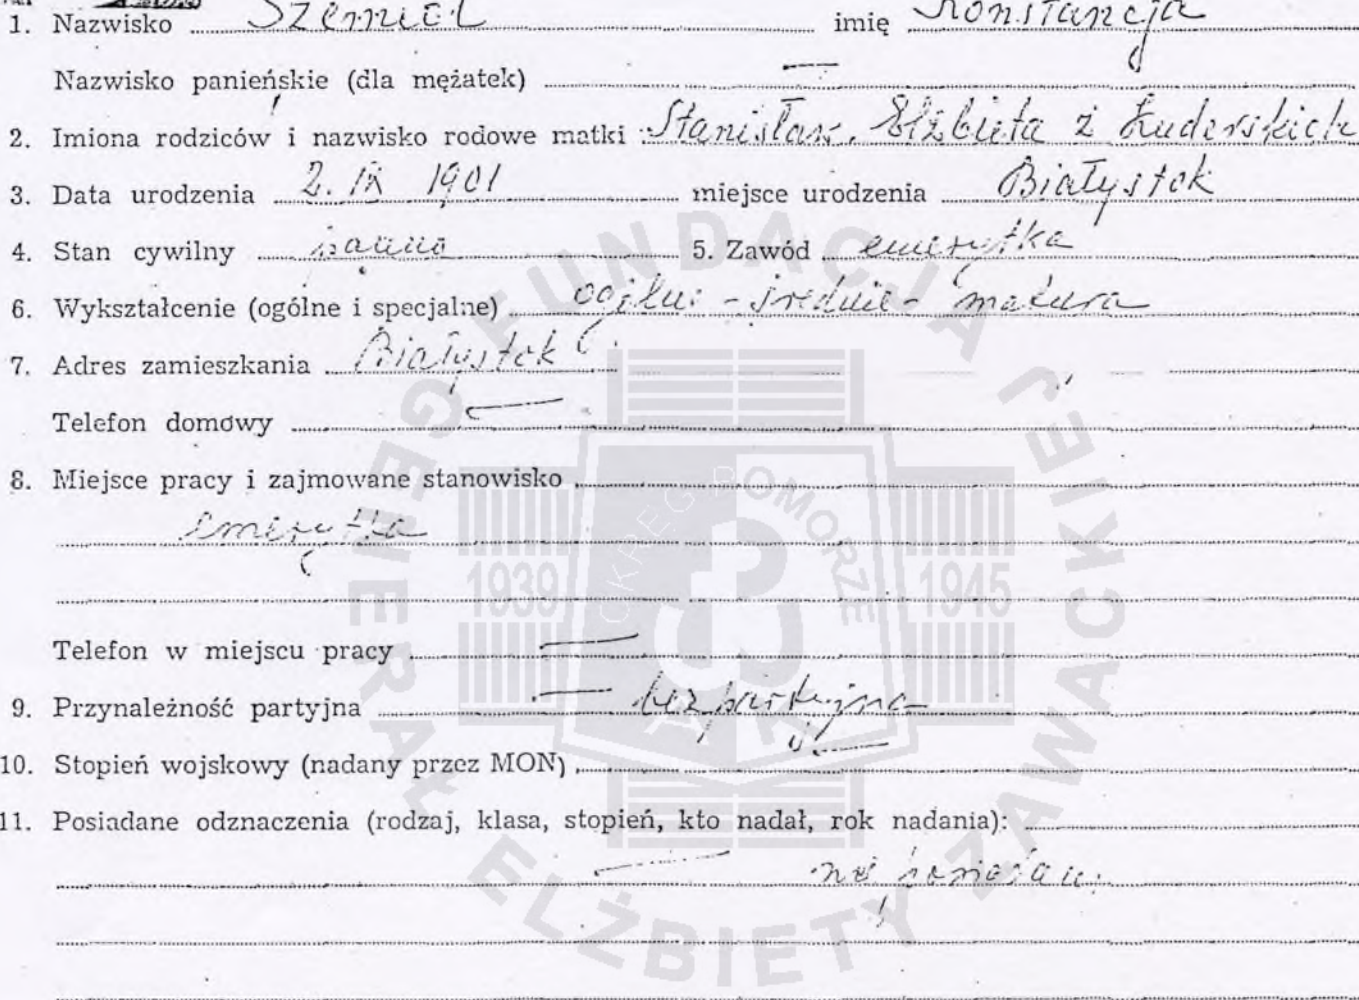 1. Nazwisko Szemiot imię Konstancja
Nazwisko panieńskie (dla mężatek) —
2. Imiona rodziców i nazwisko rodowe matki Stanisław, Elżbieta z Łuderskich
3. Data urodzenia 2. IX 1901 miejsce urodzenia Białystok
4. Stan cywilny panna 5. Zawód emerytka
6. Wykształcenie (ogólne i specjalne) ogólne - średnie - matura
7. Adres zamieszkania Białystok
Telefon domowy —
8. Miejsce pracy i zajmowane stanowisko
emerytka
Telefon w miejscu pracy —
9. Przynależność partyjna — bezpartyjna
10. Stopień wojskowy (nadany przez MON) —
11. Posiadane odznaczenia (rodzaj, klasa, stopień, kto nadał, rok nadania):
— nie posiadam.
FUNDACJA GENERAŁ ELŻBIETY ZAWACKIEJ
OKRĘG POMORZE
1939 1945
AK